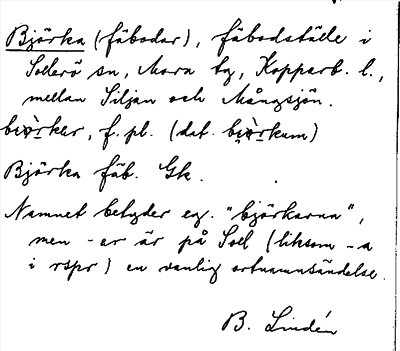 Björka (fäbodar), fäbodställe i
Sollerö sn, Mora tg, Kopparb. l.,
mellan Siljan och Mångsjön.
björker, f. pl. (dat. björkum)
Björka fäb. Gk.
Namnet betyder eg. "björkarna",
men -er är på Soll (liksom -a
i rspr) en vanlig ortnamnsändelse.
B. Lindén